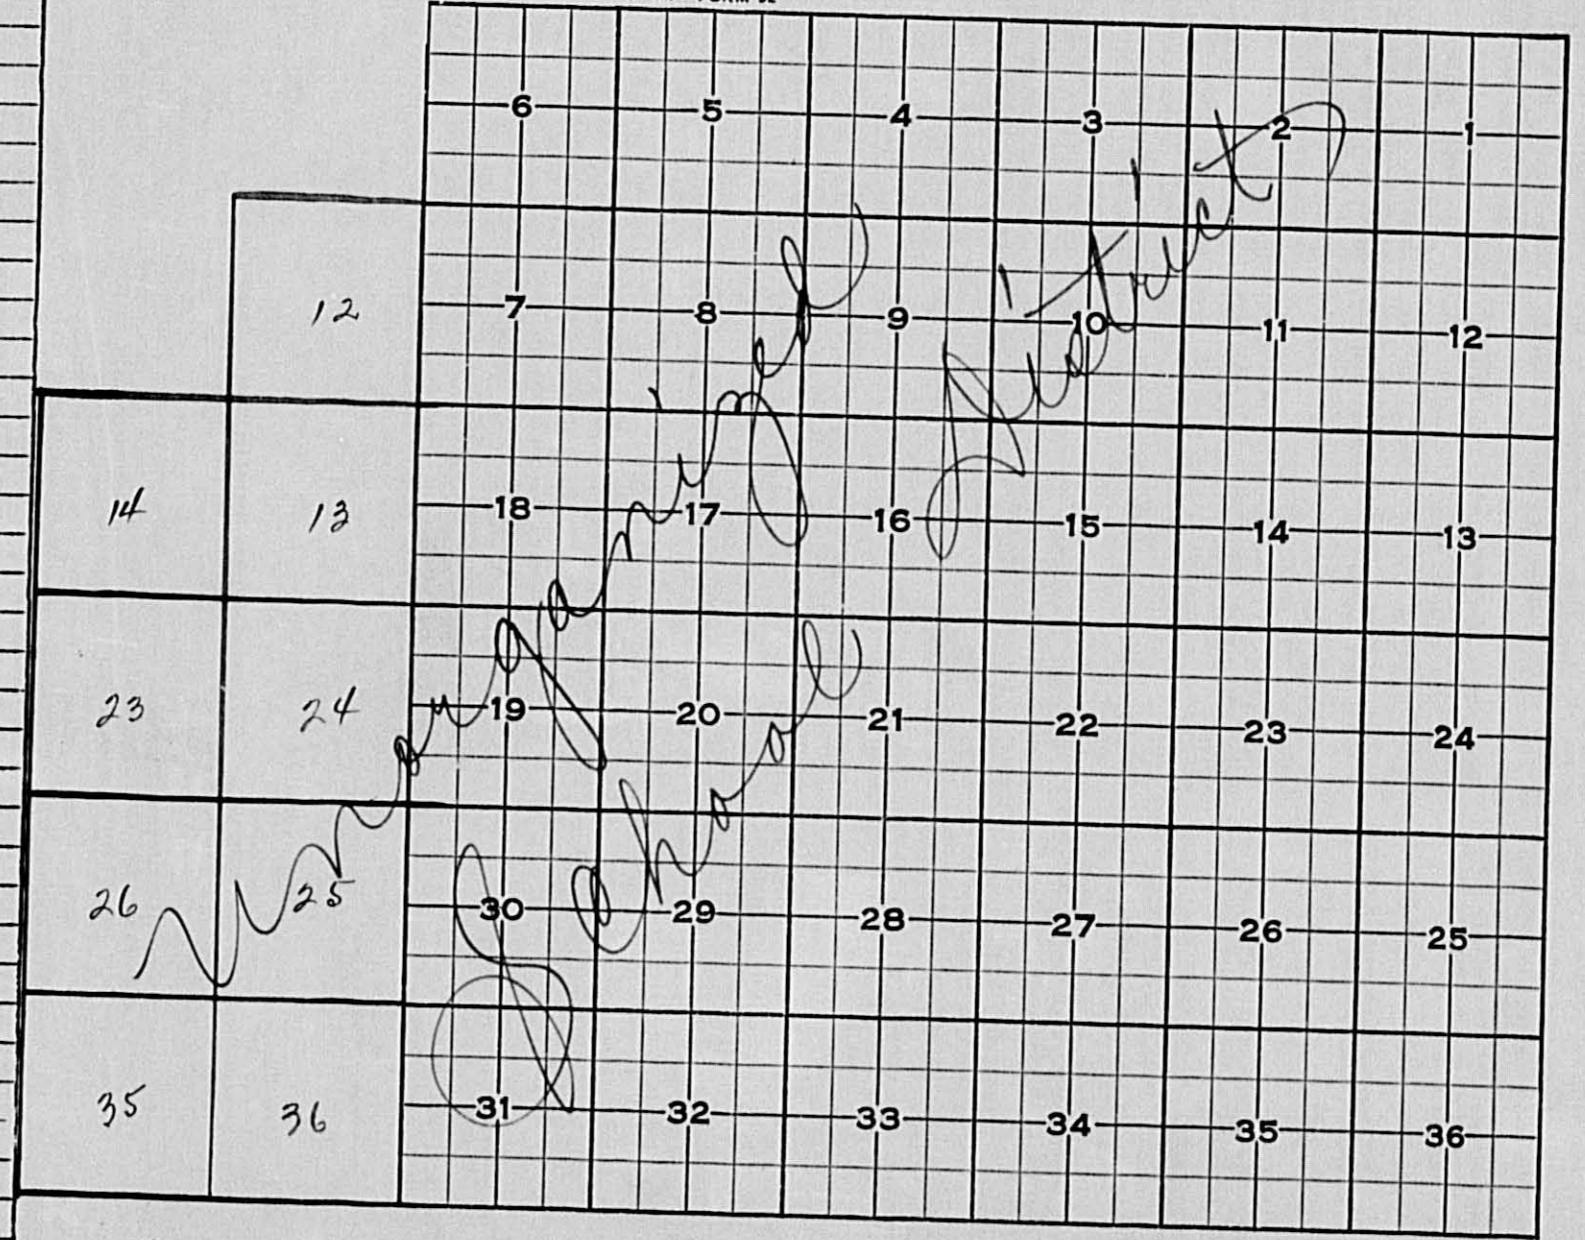 6 5 4 3 2 1
12 7 8 9 10 11 12
14 13 18 17 16 15 14 13
23 24 19 20 21 22 23 24
26 25 30 29 28 27 26 25
35 36 31 32 33 34 35 36
Unorganized
School District